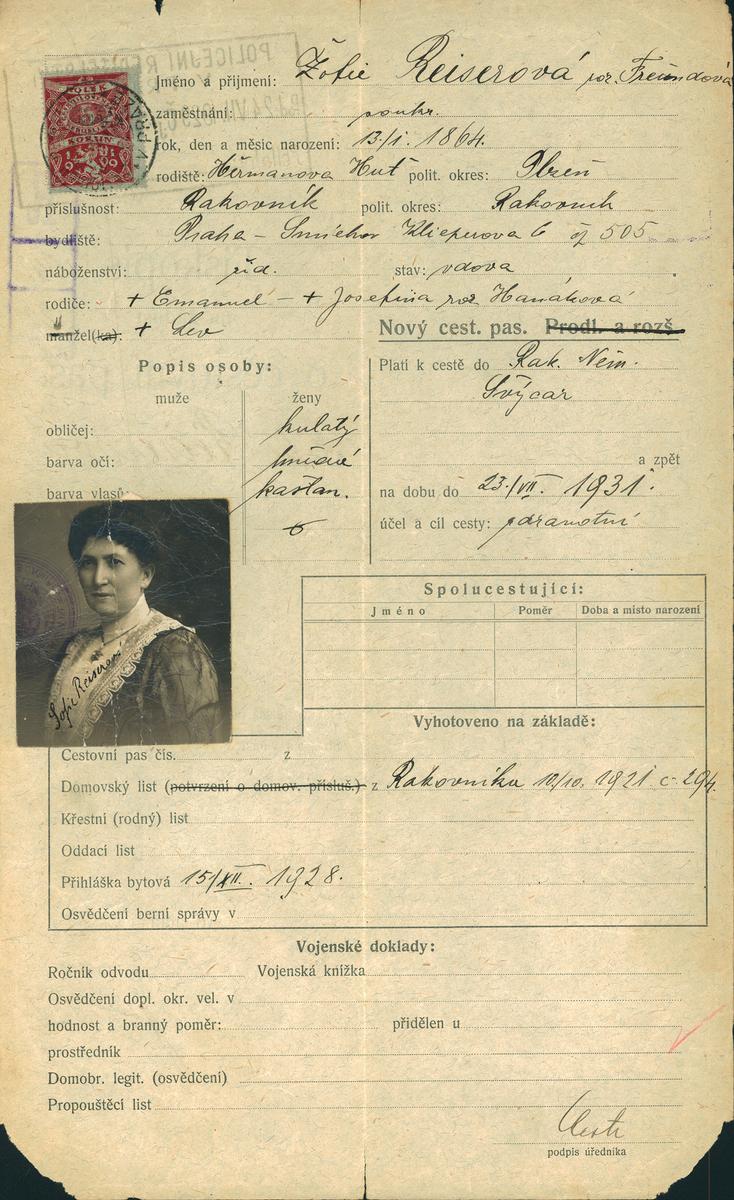 KOLEK
5
KORUN
1919
PRAZE
POLICEJNÍ ŘEDITELSTVÍ
Jméno a přijmení: Žofie Reiserová roz. Freundová
zaměstnání: soukr.
rok, den a měsíc narození: 13./I. 1864.
rodiště: Heřmanova Huť polit. okres: Plzeň
příslušnost: Rakovník polit. okres: Rakovník
bydliště: Praha - Smíchov Klicperova 6 čp 505
náboženství: žid. stav: vdova
rodiče: + Emanuel - + Josefina roz Hanáková
manžel(ka): + Lev
Nový cest. pas. Prodl. a rozš.
Popis osoby:
Platí k cestě do Rak. Něm.
Švýcar
muže ženy
obličej: kulatý
barva očí: hnědé
a zpět
barva vlasů: kaštan.
na dobu do 23./VII. 1931.
účel a cíl cesty: zdravotní
Spolucestující:
Jméno Poměr Doba a místo narození
Žofie Reiserová
Vyhotoveno na základě:
Cestovní pas čís. z
Domovský list (potvrzení o domov. přísluš.) z Rakovníka 10/10. 1921 č. 294.
Křestní (rodný) list
Oddací list
Přihláška bytová 15/XII. 1928.
Osvědčení berní správy v
Vojenské doklady:
Ročník odvodu Vojenská knížka
Osvědčení dopl. okr. vel. v
hodnost a branný poměr: přidělen u
prostředník
Domobr. legit. (osvědčení)
Propouštěcí list
podpis úředníka